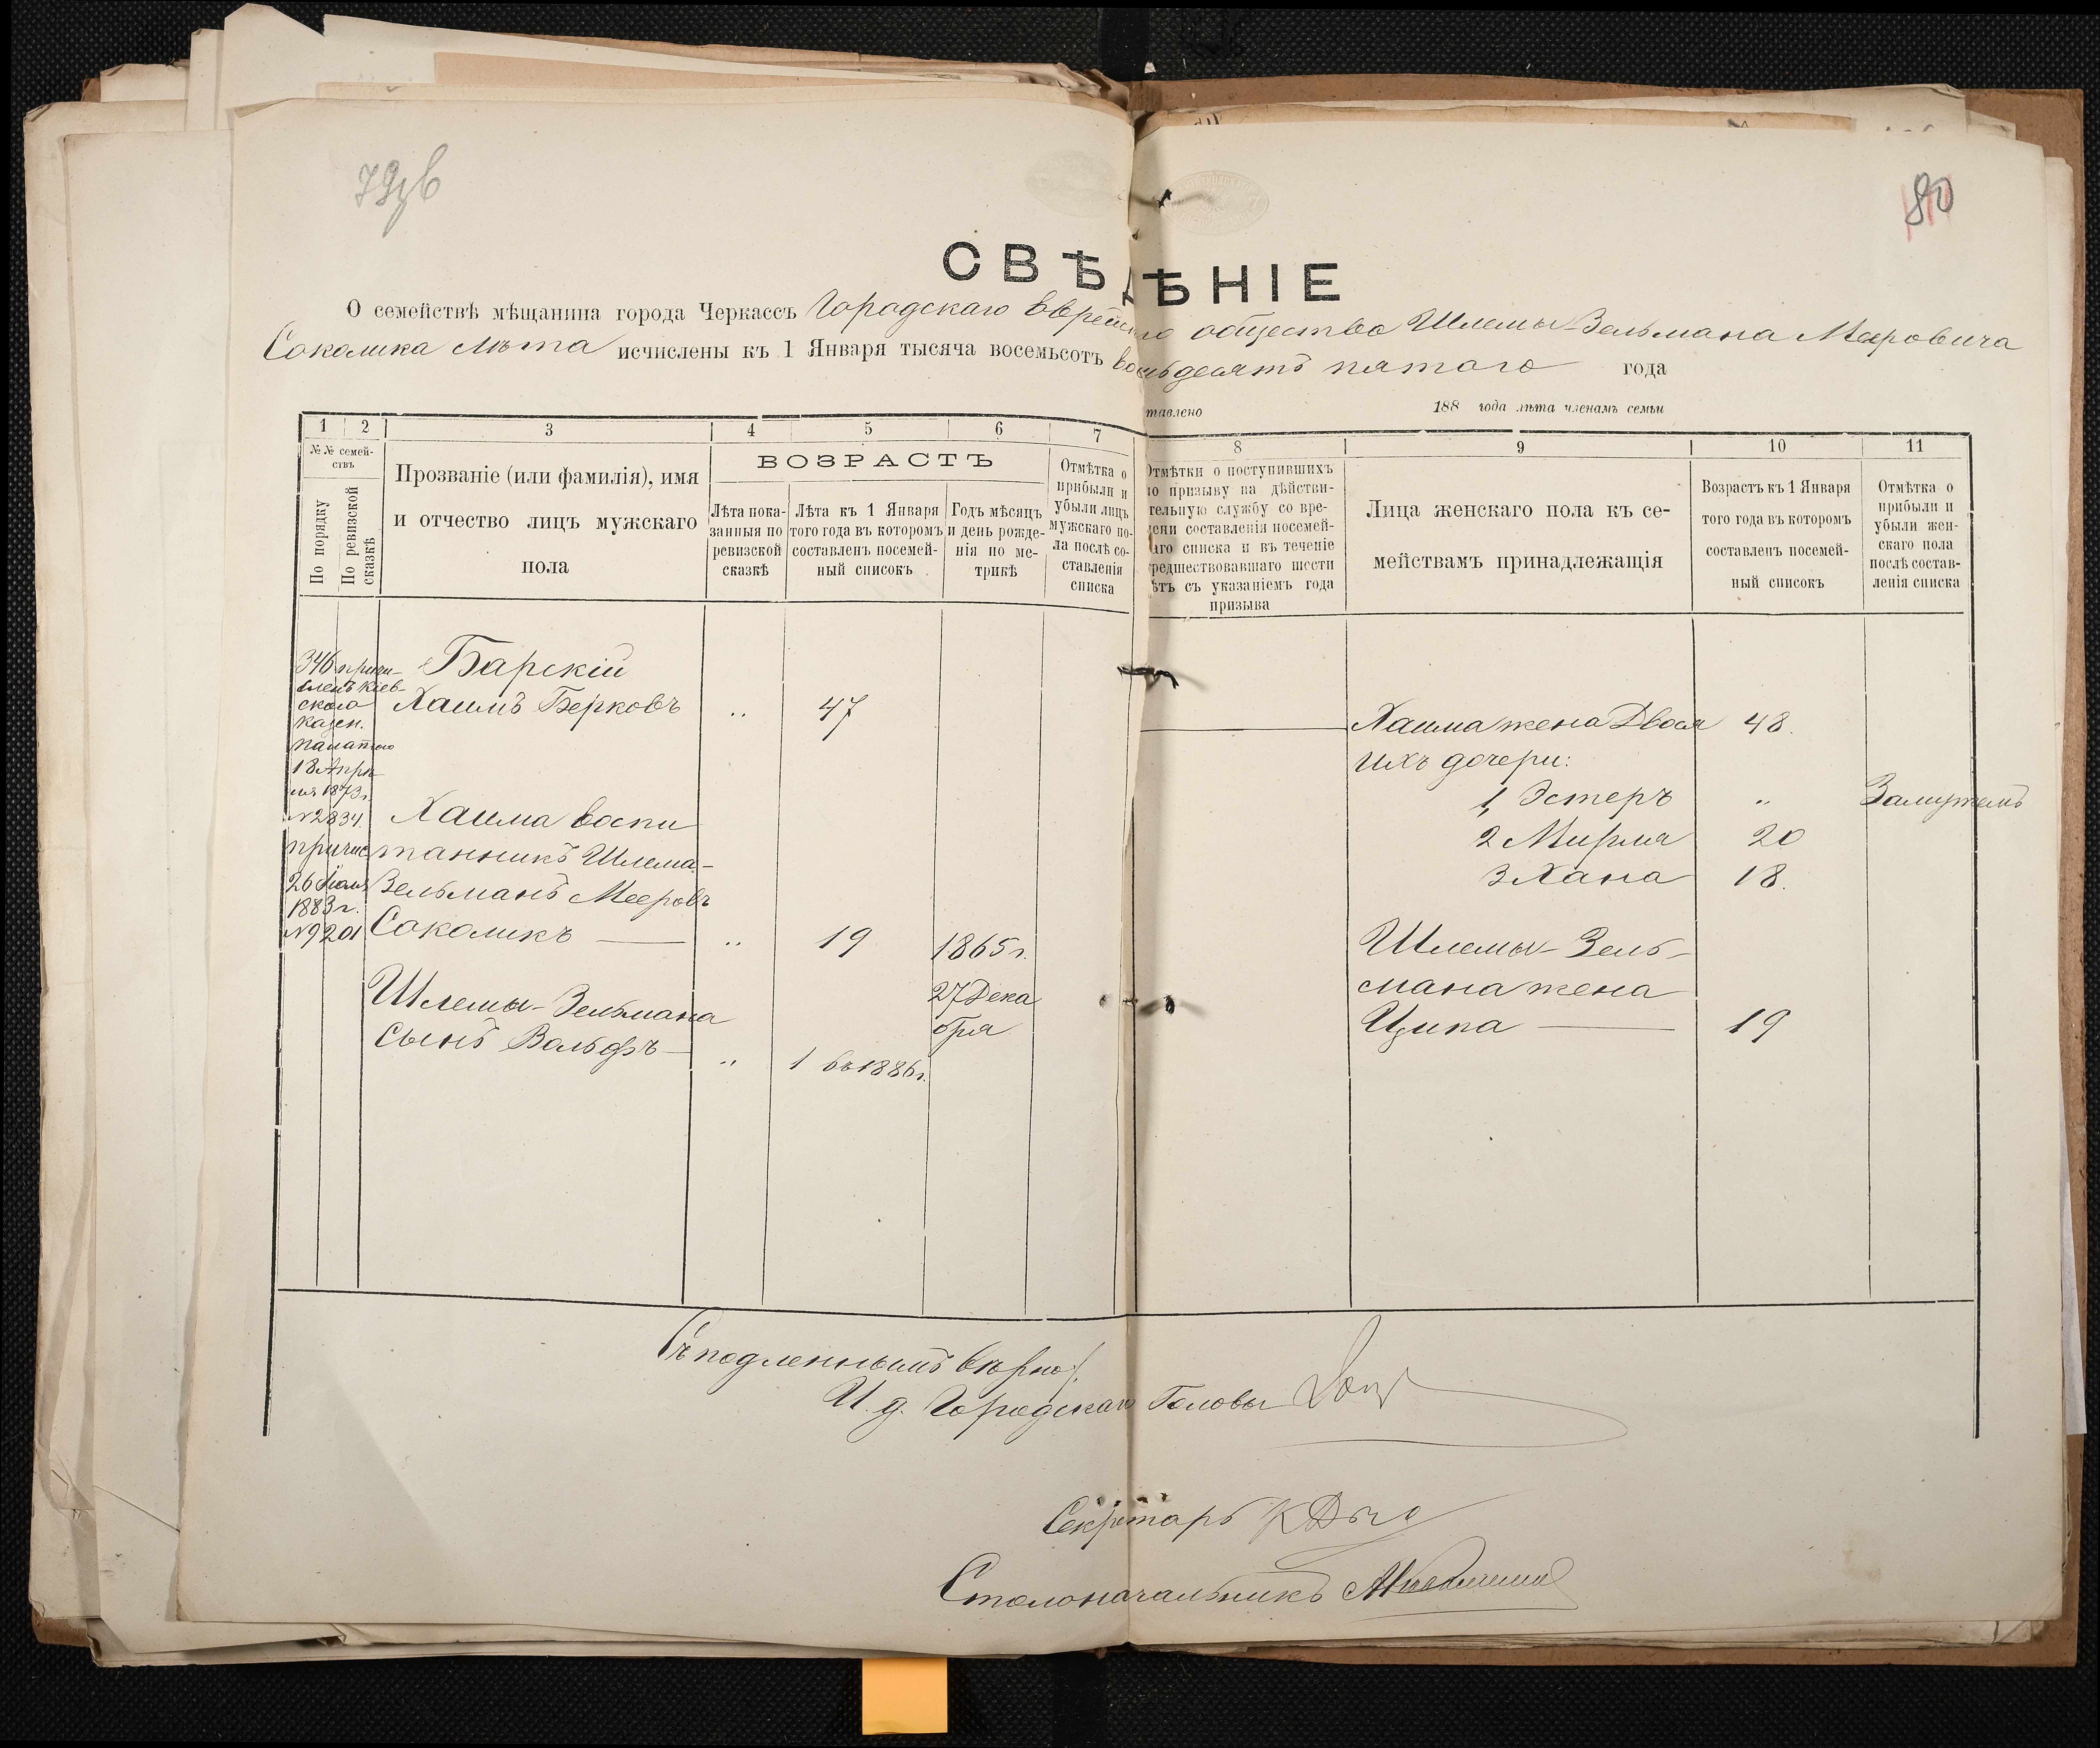 79об
80
СВѢДѢНІЕ
О семействѣ мѣщанина города Черкассъ Городскаго Еврейскаго общества Шлемы-Зельмана Мееровича
Соколика лѣта исчислены къ 1 Января тысяча восемьсотъ восемьдесятъ пятаго года
тавлено 188 года лѣта членамъ семьи
1 2 3 4 5 6 7 8 9 10 11
№№ семей-
ствъ
По порядку
По ревизской
сказкѣ
Прозваніе (или фамилія), имя
и отчество лицъ мужскаго
пола
ВОЗРАСТЪ
Лѣта пока-
занныя по
ревизской
сказкѣ
Лѣта къ 1 Января
того года въ которомъ
составленъ посемей-
ный списокъ
Годъ мѣсяцъ
и день рожде-
нія по ме-
трикѣ
Отмѣтка о
прибыли и
убыли лицъ
мужскаго по-
ла послѣ со-
ставленія
списка
Отмѣтки о поступившихъ
по призыву на дѣйстви-
тельную службу со вре-
мени составленія посемей-
наго списка и въ теченіе
предшествовавшаго шести
лѣтъ съ указаніемъ года
призыва
Лица женскаго пола къ се-
мействамъ принадлежащія
Возрастъ къ 1 Января
того года въ которомъ
составленъ посемей-
ный списокъ
Отмѣтка о
прибыли и
убыли жен-
скаго пола
послѣ состав-
ленія списка
346 причи-
сленъ Кіев-
скою
казен.
палатою
18 Апрѣ
ля 1873 г.
№ 2834.
причис
26 Іюля
1883 г.
№ 9201
Барскій
Хаимъ Берковъ " 47
Хаима воспи
танникъ Шлема-
Зельманъ Мееровъ
Соколикъ — " 19 1865 г.
27 Дека
бря
Шлемы-Зельмана
сынъ Вольфъ — " 1 въ 1886 г.
Хаима жена Двося 48.
Ихъ дочери:
1, Эстеръ " Замужемъ
2 Мирля 20
3 Хана 18.
Шлемы-Зель-
мана жена
Ципа — 19
Съ подленнымъ вѣрно:
И. д. Городскаго Головы
Секретарь
Столоначальникъ